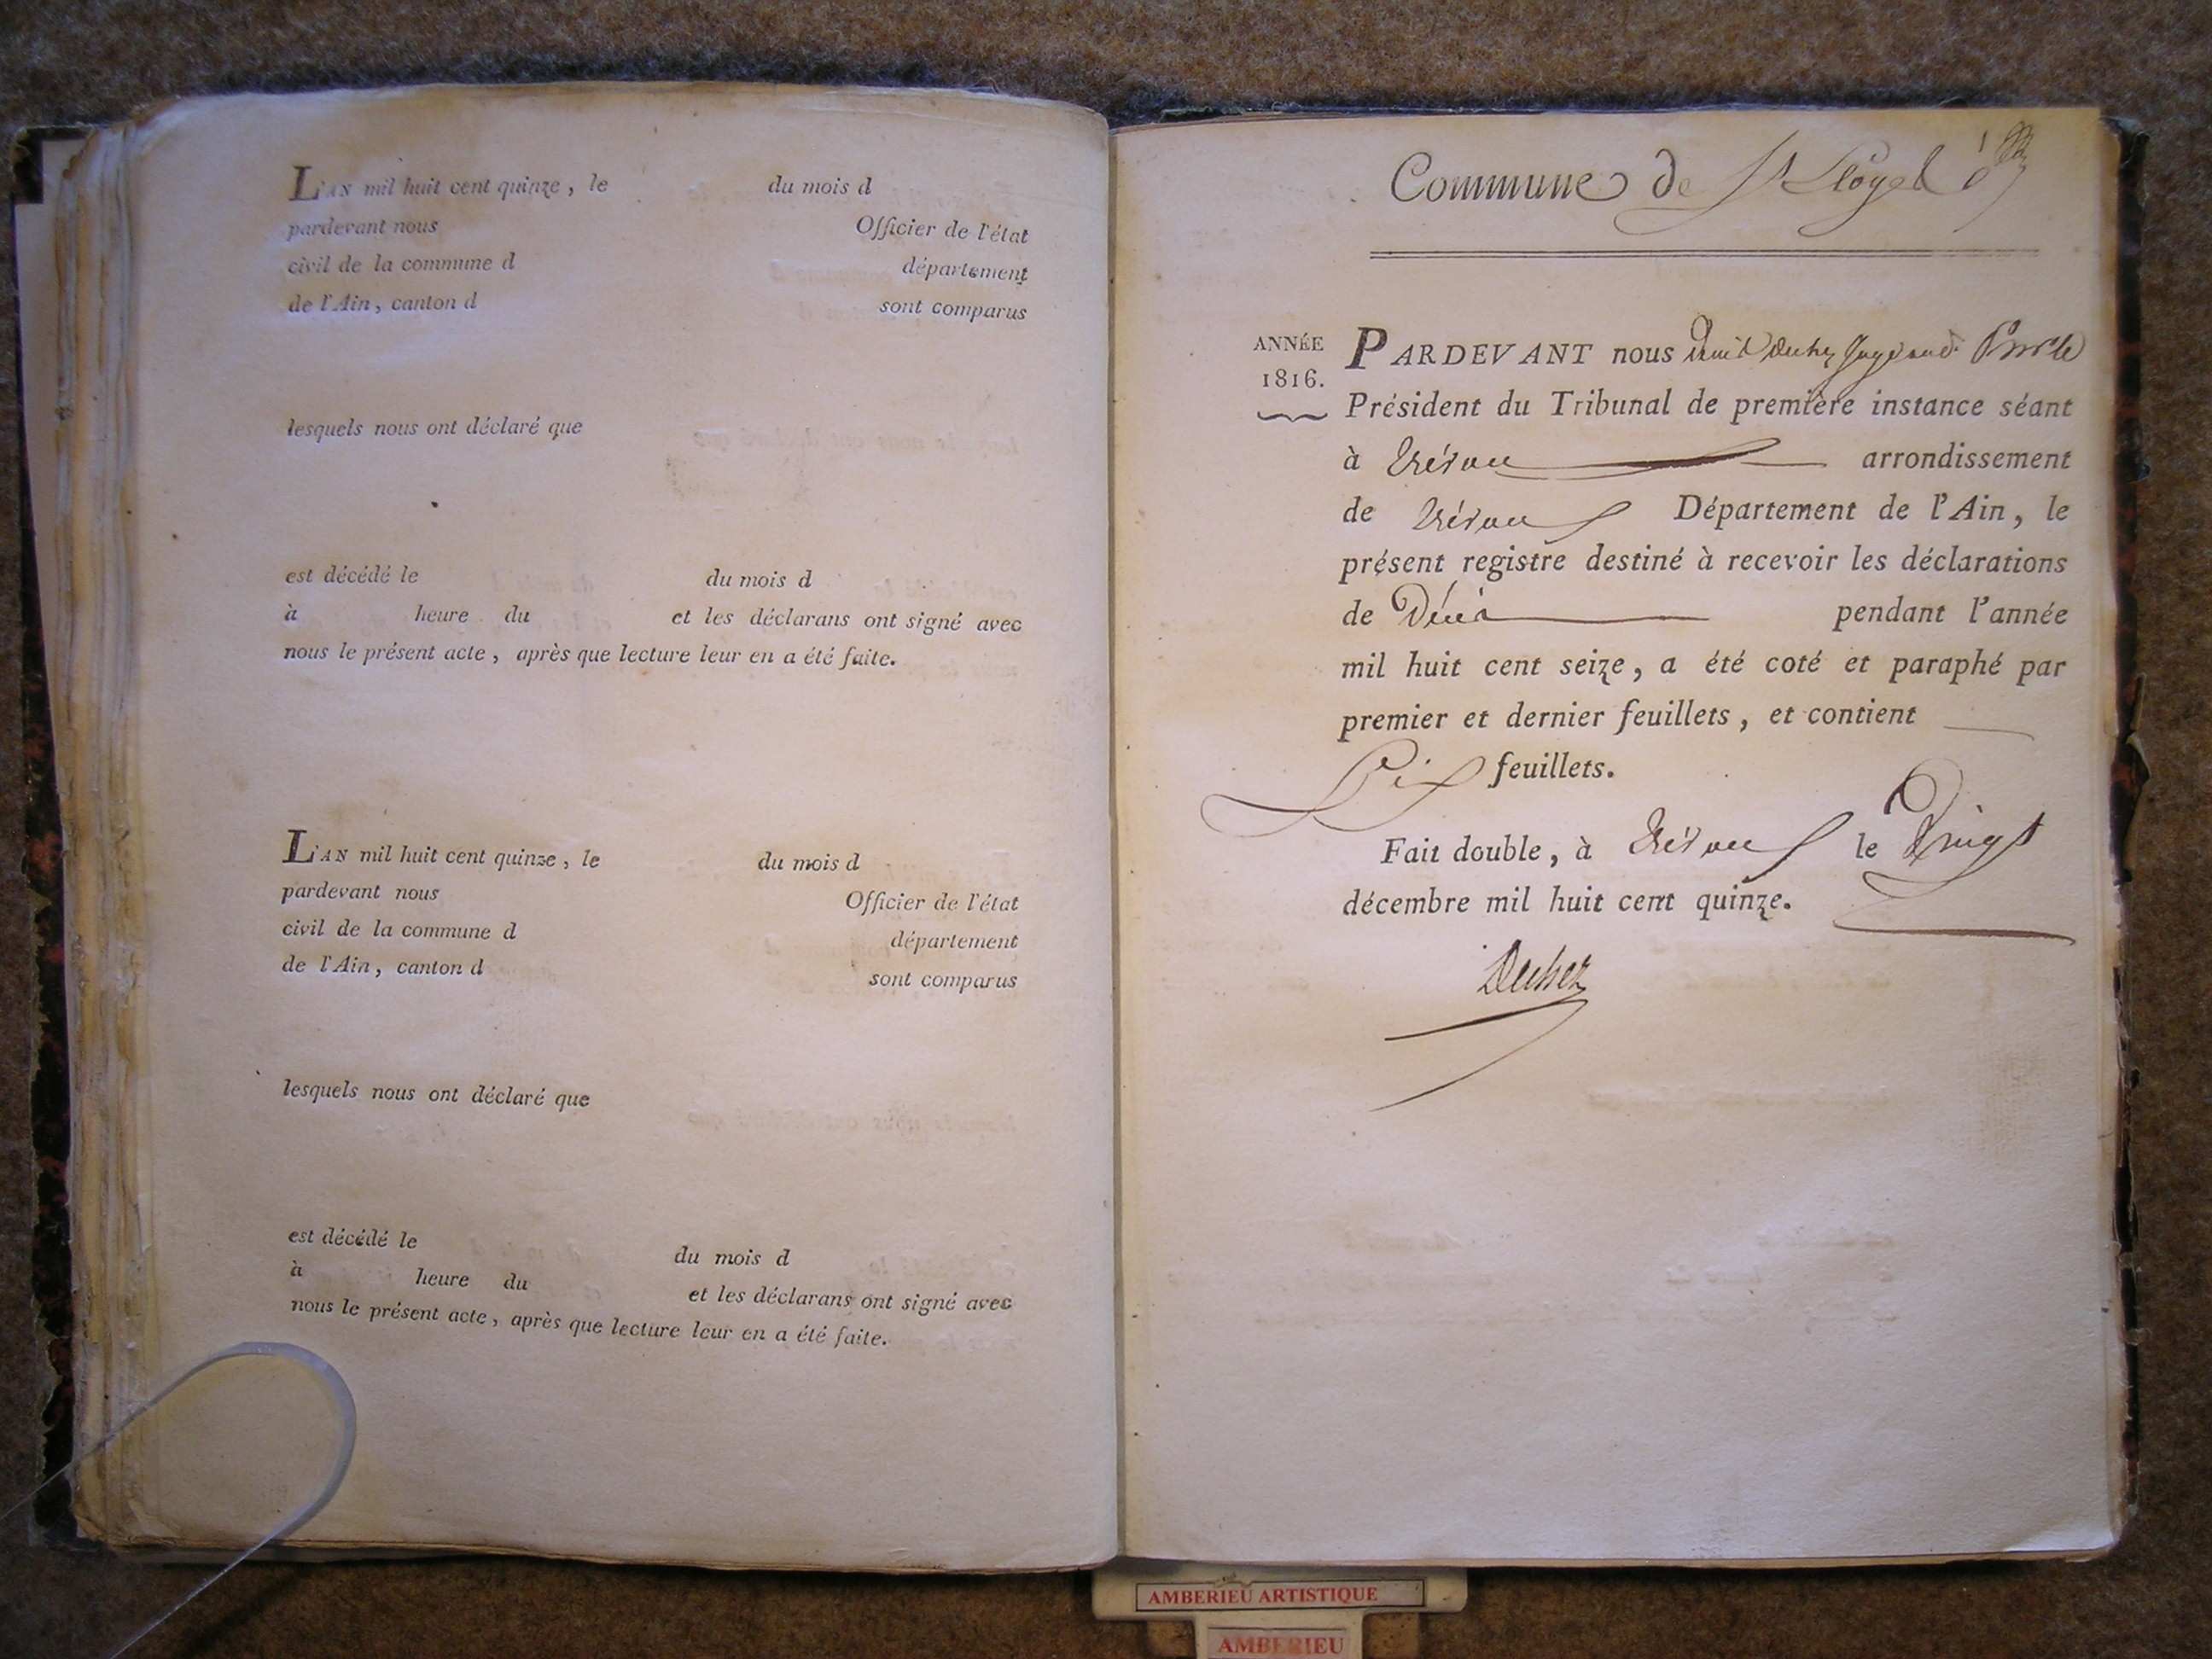 L'AN mil huit cent quinze, le du mois d
pardevant nous Officier de l'état
civil de la commune d département
de l'Ain, canton d sont comparus
lesquels nous ont déclaré que
est décédé le du mois d
à heure du et les déclarans ont signé avec
nous le présent acte, après que lecture leur en a été faite.
L'AN mil huit cent quinze, le du mois d
pardevant nous Officier de l'état
civil de la commune d département
de l'Ain, canton d sont comparus
lesquels nous ont déclaré que
est décédé le du mois d
à heure du et les déclarans ont signé avec
nous le présent acte, après que lecture leur en a été faite.
Commune de St
ANNÉE
1816.
PARDEVANT nous
Président du Tribunal de première instance séant
à Trévoux arrondissement
de Trévoux Département de l'Ain, le
présent registre destiné à recevoir les déclarations
de Décès pendant l'année
mil huit cent seize, a été coté et paraphé par
premier et dernier feuillets, et contient
Six feuillets.
Fait double, à Trévoux le Vingt
décembre mil huit cent quinze.
AMBERIEU ARTISTIQUE
AMBERIEU